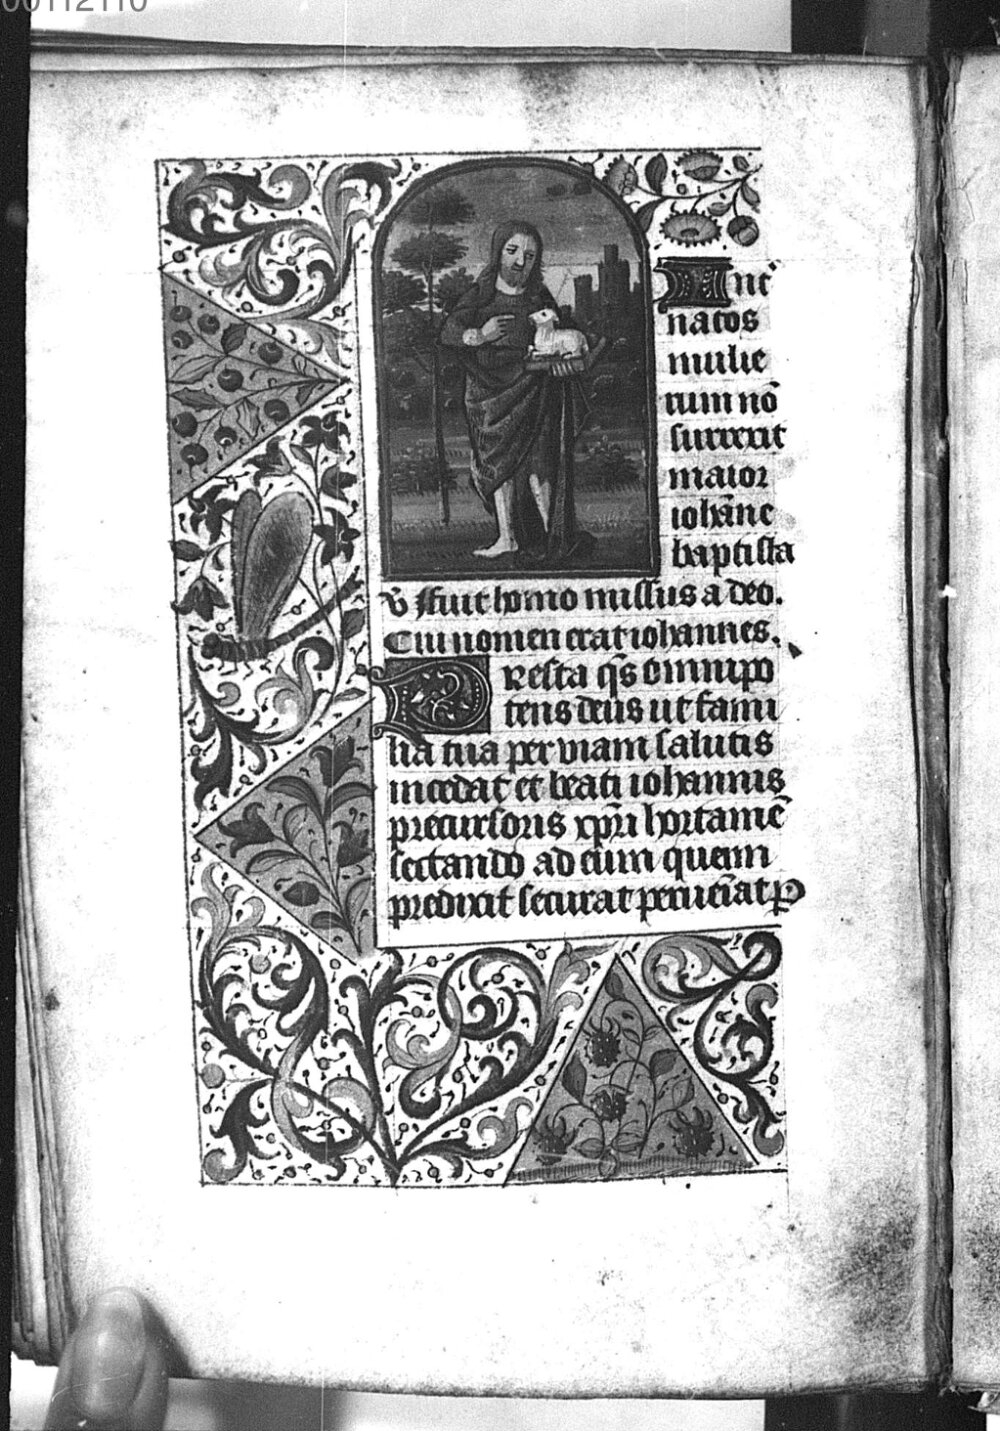 00112110
Int̄
natos
mulie
rum nō
surrexit
maior
iohāne
baptista
v̄ ffuit homo missus a deo.
Cui nomen erat iohannes.
Presta q̄s omnipo
tens deus ut fami
lia tua per viam salutis
incedat et beati iohannis
precursoris xp̄i hortamē
sectando ad eum quem
predixit securat perueīat P